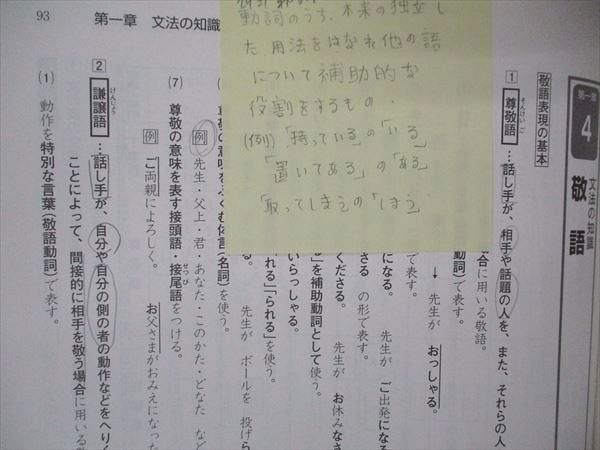 93
第一章 文法の知識
第一章
4
文法の知識
敬語
敬語表現の基本
1 尊敬語…話し手が、相手や話題の人を、また、それらの人
そんけいご
場合に用いる敬語。
動詞)で表す。
→ 先生が おっしゃる。
で表す。
になる。 先生が ご出発になる
さる の形で表す。
くださる。 先生が お休みなさ
」を補助動詞として使う。
いらっしゃる。
れる」「られる」を使う。
る。 先生が ボールを 投げら
尊敬の意味をふくむ体言(名詞)を使う。
例 先生・父上・君・あなた・このかた・どなた など
(7) 尊敬の意味を表す接頭語・接尾語をつける。
せつび
例 ご両親によろしく。 お父さまがおみえになった
2 謙譲語…話し手が、自分や自分の側の者の動作などをへりく
けんじょう
ことによって、間接的に相手を敬う場合に用いる敬
(1) 動作を特別な言葉(敬語動詞)で表す。
動詞のうち、本来の独立し
た用法をはなれ他の語
について補助的な
役割をするもの.
(例)「持っている」の「いる」
「置いてある」の「ある」
「取ってしまう」の「しまう」